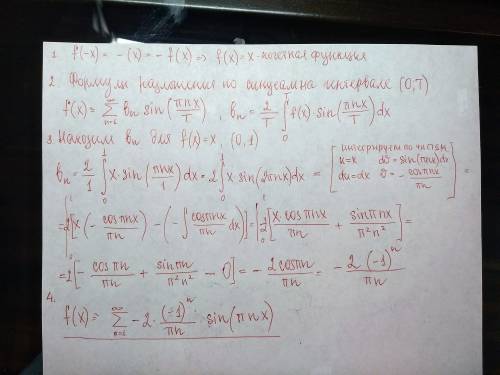 1. f(-x) = -(x) = -f(x) => f(x)=x - нечетная функция
2. Формулы разложения по синусам на интервале (0,T)
f(x) = ∑_{n=1}^{∞} bₙ sin(πnx/T), bₙ = 2/T ∫₀ᵀ f(x)·sin(πnx/T)dx
3. Находим bₙ для f(x)=x, (0,1)
bₙ = 2/1 ∫₀¹ x·sin(πnx/1)dx = 2∫₀¹ x·sin(2πnx)dx = [интегрируем по частям u=x dv=sin(πnx)dx du=dx v=-cosπnx/πn] =
=2[x(-cosπnx/πn) - (-∫cosπnx/πn dx)]₀¹ = 2[-x·cosπnx/πn + sinπnx/π²n²]₀¹ =
=2[-cosπn/πn + sinπn/π²n² - 0] = -2cosπn/πn = -2(-1)ⁿ/πn
4.
f(x) = ∑_{n=1}^{∞} -2·(-1)ⁿ/πn · sin(πnx)